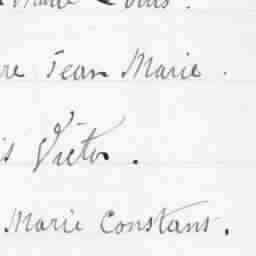 Louis.
re Jean Marie.
is Victor.
Marie Constant.